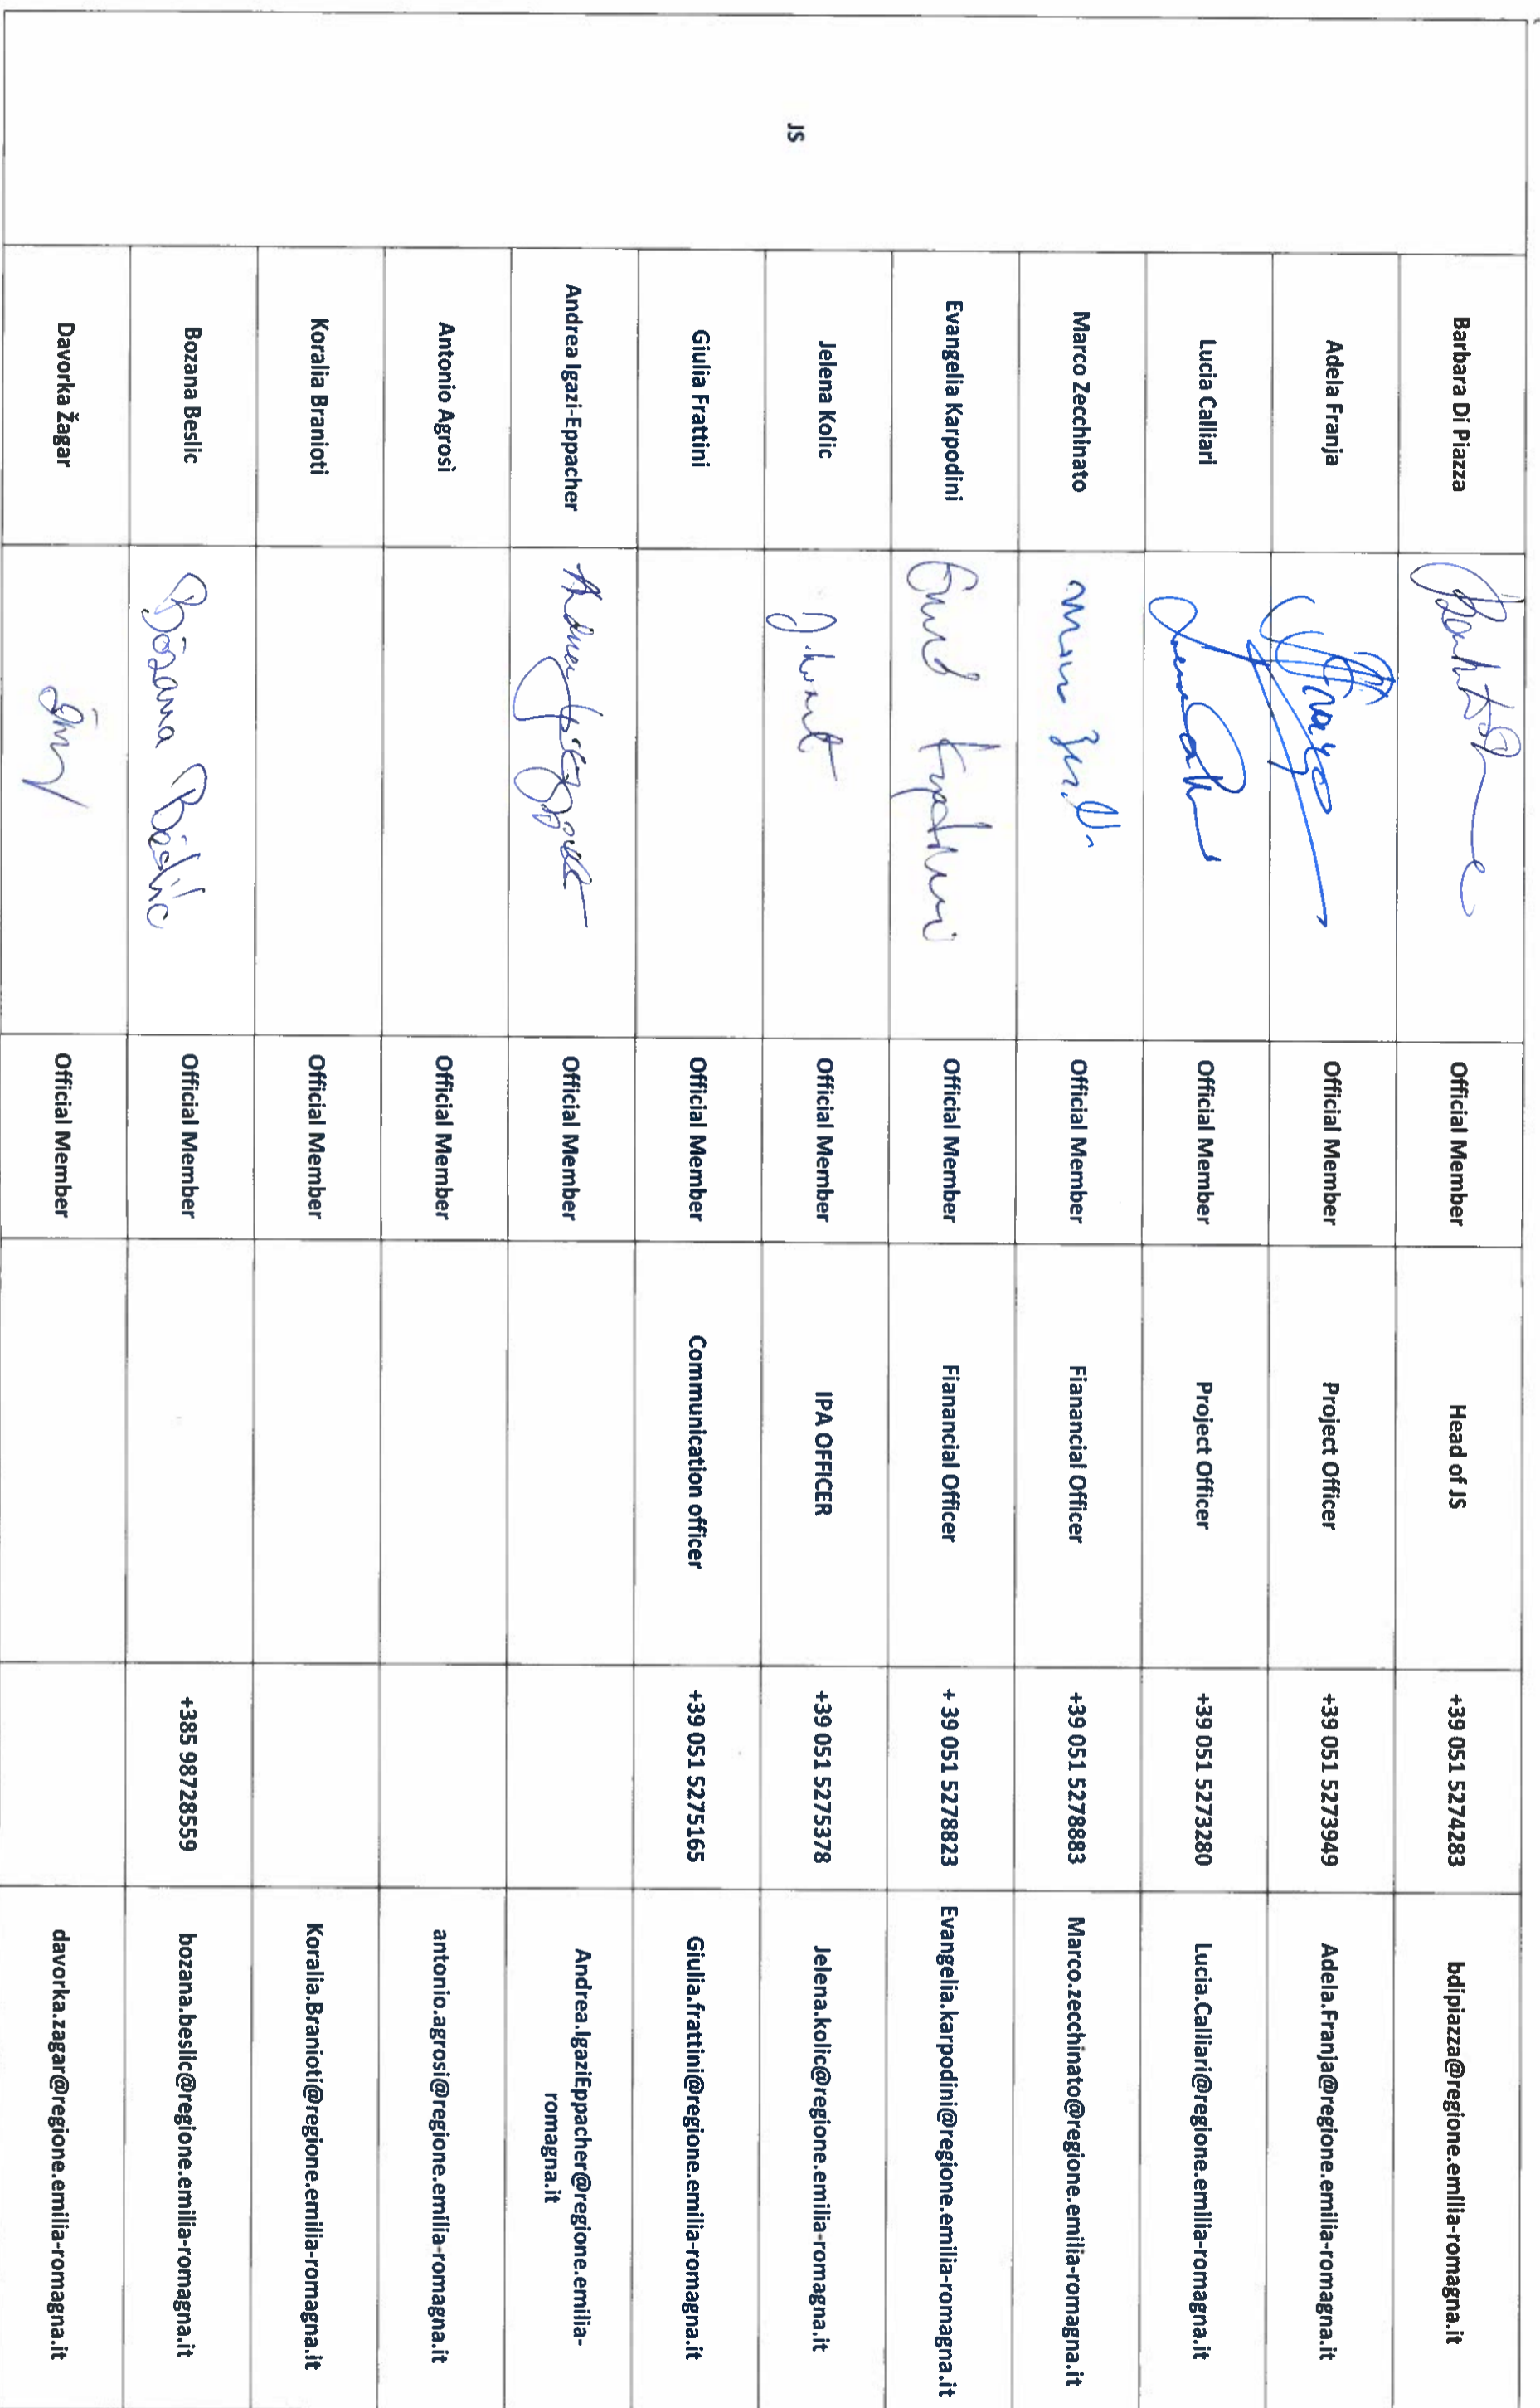 JS
Barbara Di Piazza Official Member Head of JS +39 051 5274283 bdipiazza@regione.emilia-romagna.it
Adela Franja Official Member Project Officer +39 051 5273949 Adela.Franja@regione.emilia-romagna.it
Lucia Calliari Official Member Project Officer +39 051 5273280 Lucia.Calliari@regione.emilia-romagna.it
Marco Zecchinato Official Member Fianancial Officer +39 051 5278883 Marco.zecchinato@regione.emilia-romagna.it
Evangelia Karpodini Official Member Fianancial Officer + 39 051 5278823 Evangelia.karpodini@regione.emilia-romagna.it
Jelena Kolic Official Member IPA OFFICER +39 051 5275378 Jelena.kolic@regione.emilia-romagna.it
Giulia Frattini Official Member Communication officer +39 051 5275165 Giulia.frattini@regione.emilia-romagna.it
Andrea Igazi-Eppacher Official Member Andrea.IgaziEppacher@regione.emilia-
romagna.it
Antonio Agrosì Official Member antonio.agrosi@regione.emilia-romagna.it
Koralia Branioti Official Member Koralia.Branioti@regione.emilia-romagna.it
Bozana Beslic Official Member +385 98728559 bozana.beslic@regione.emilia-romagna.it
Davorka Žagar Official Member davorka.zagar@regione.emilia-romagna.it